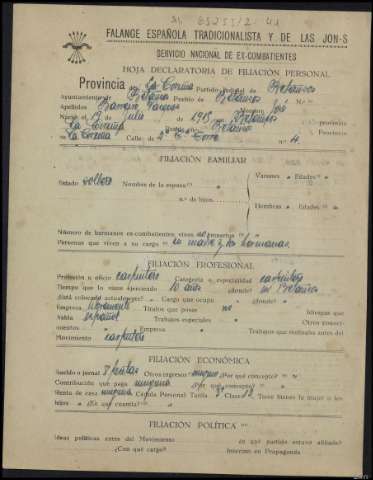 FALANGE ESPAÑOLA TRADICIONALISTA Y DE LAS JON-S
SERVICIO NACIONAL DE EX-COMBATIENTES
HOJA DECLARATORIA DE FILIACIÓN PERSONAL
Provincia de La Coruña Partido Judicial de Betanzos
Ayuntamiento de Betanzos Pueblo de Betanzos N.º
Apellidos Nombre José
Nació el de Julio de 1915 en Betanzos Provincia
La Coruña Betanzos Provincia
La Coruña Calle: de N.º 4
FILIACIÓN FAMILIAR
Estado soltero Nombre de la esposa Varones Edades
n.º de hijos
Hembras Edades
Número de hermanos ex-combatientes, vivos
Personas que viven a su cargo su madre y hermanas
FILIACIÓN PROFESIONAL
Profesión u oficio carpintero Categoría o especialidad carpintero
Tiempo que lo viene ejerciendo 10 años ¿dónde? en Betanzos
¿Está colocado actualmente? Cargo que ocupa ¿dónde?
Empresa Títulos que posee no Idiomas que
habla español Trabajos especiales Otros conoci-
mientos Empresa Trabajos que realizaba antes del
Movimiento carpintero
FILIACIÓN ECONÓMICA
Sueldo o jornal Otros ingresos ninguno ¿Por qué concepto?
Contribución que paga ninguna ¿Por qué concepto?
Renta de casa ninguna Cédula Personal Tarifa Clase 13 Tiene bienes la mujer o los
hijos ¿En qué cuantía?
FILIACIÓN POLÍTICA
Ideas políticas antes del Movimiento En qué partido estuvo afiliado?
¿Con qué cargo? Intervino en Propaganda